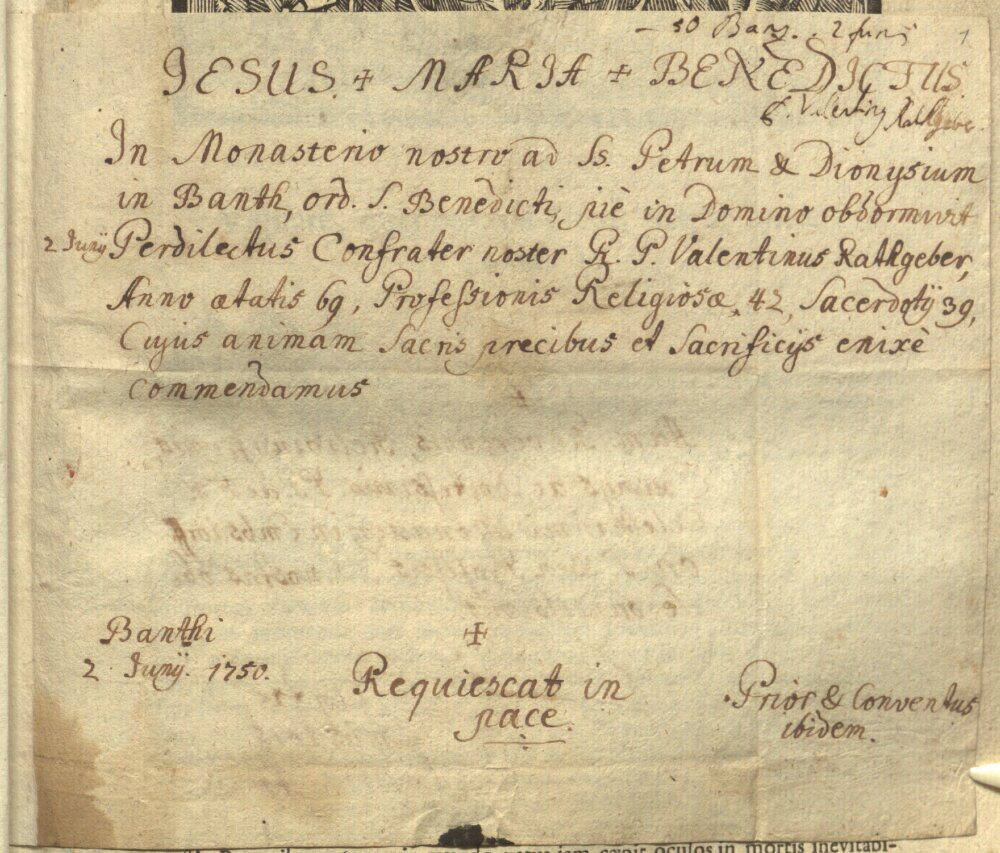 – 50 Banz. 2 Junij 1
JESUS + MARIA + BENEDICTUS.
P. Valenting Rathgeber.
In Monasterio nostro ad Ss. Petrum & Dionysium
in Banth, ord. S. Benedicti, piè in Domino obdormivit
2 Junÿ Perdilectus Confrater noster R. P. Valentinus Rathgeber,
Anno ætatis 69, Professionis Religiosæ, 42, Sacerdotÿ 39,
Cujus animam Sacris precibus et Sacrificÿs enixè
Commendamus
Banthi
2 Junÿ. 1750.
+
Requiescat in
pace.
Prior & Conventus
ibidem.
oculos in mortis inevitabi-